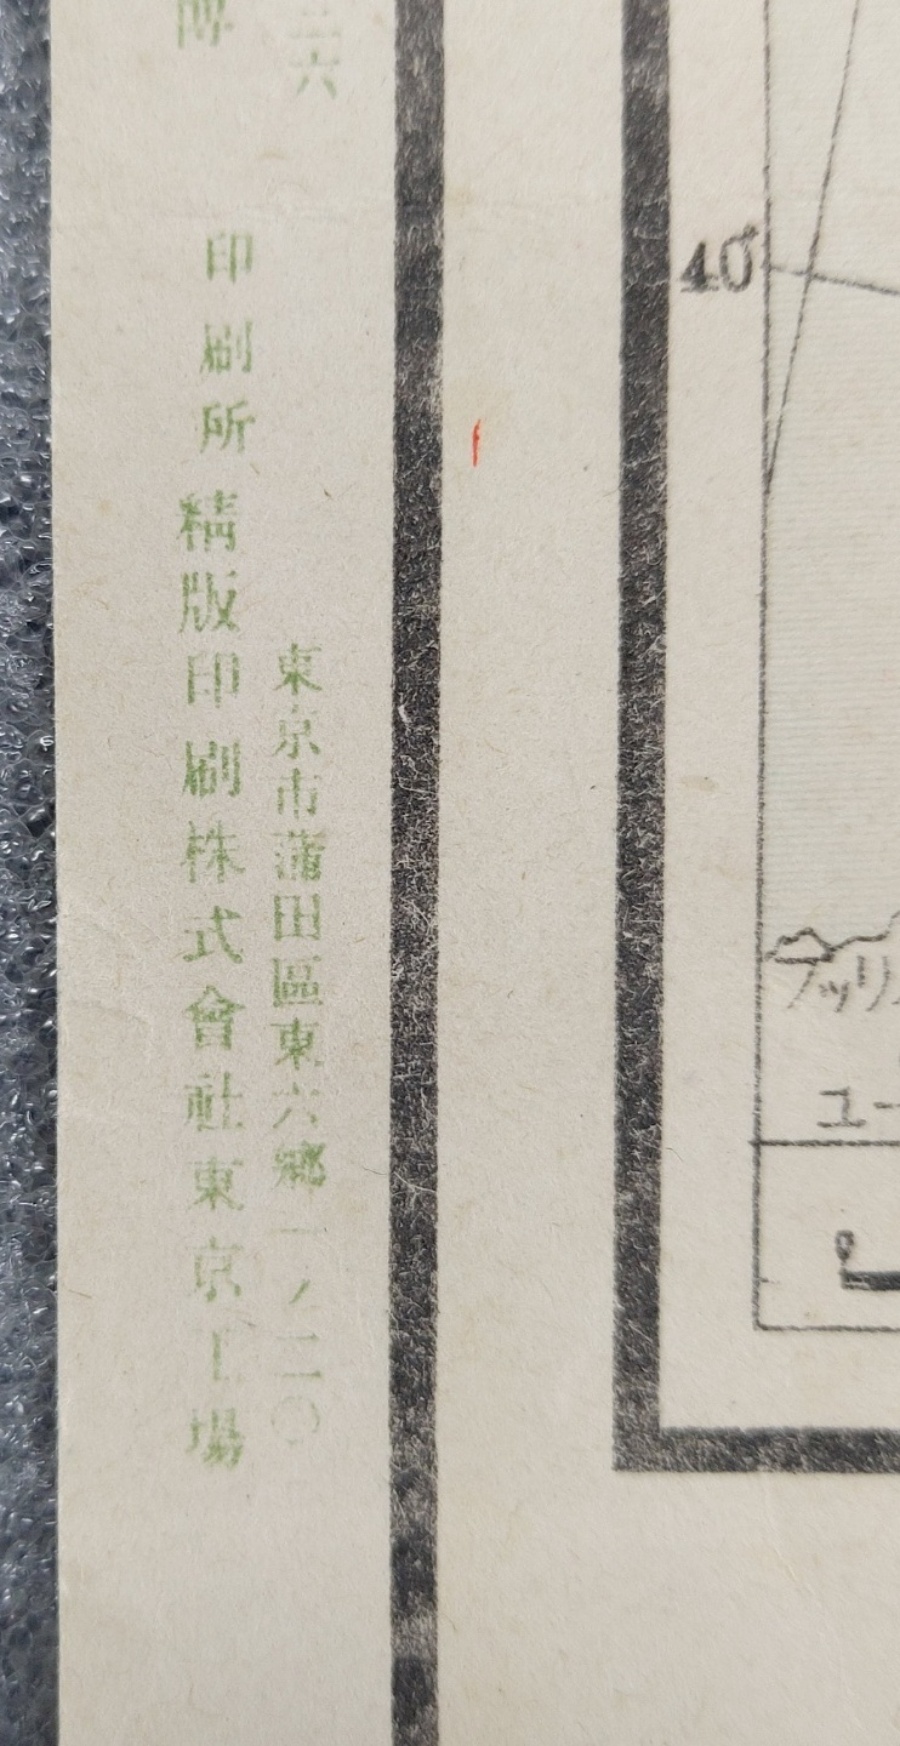 六
東京市蒲田區東六郷一ノ二〇
印刷所 精版印刷株式會社東京工場
40°
ユー